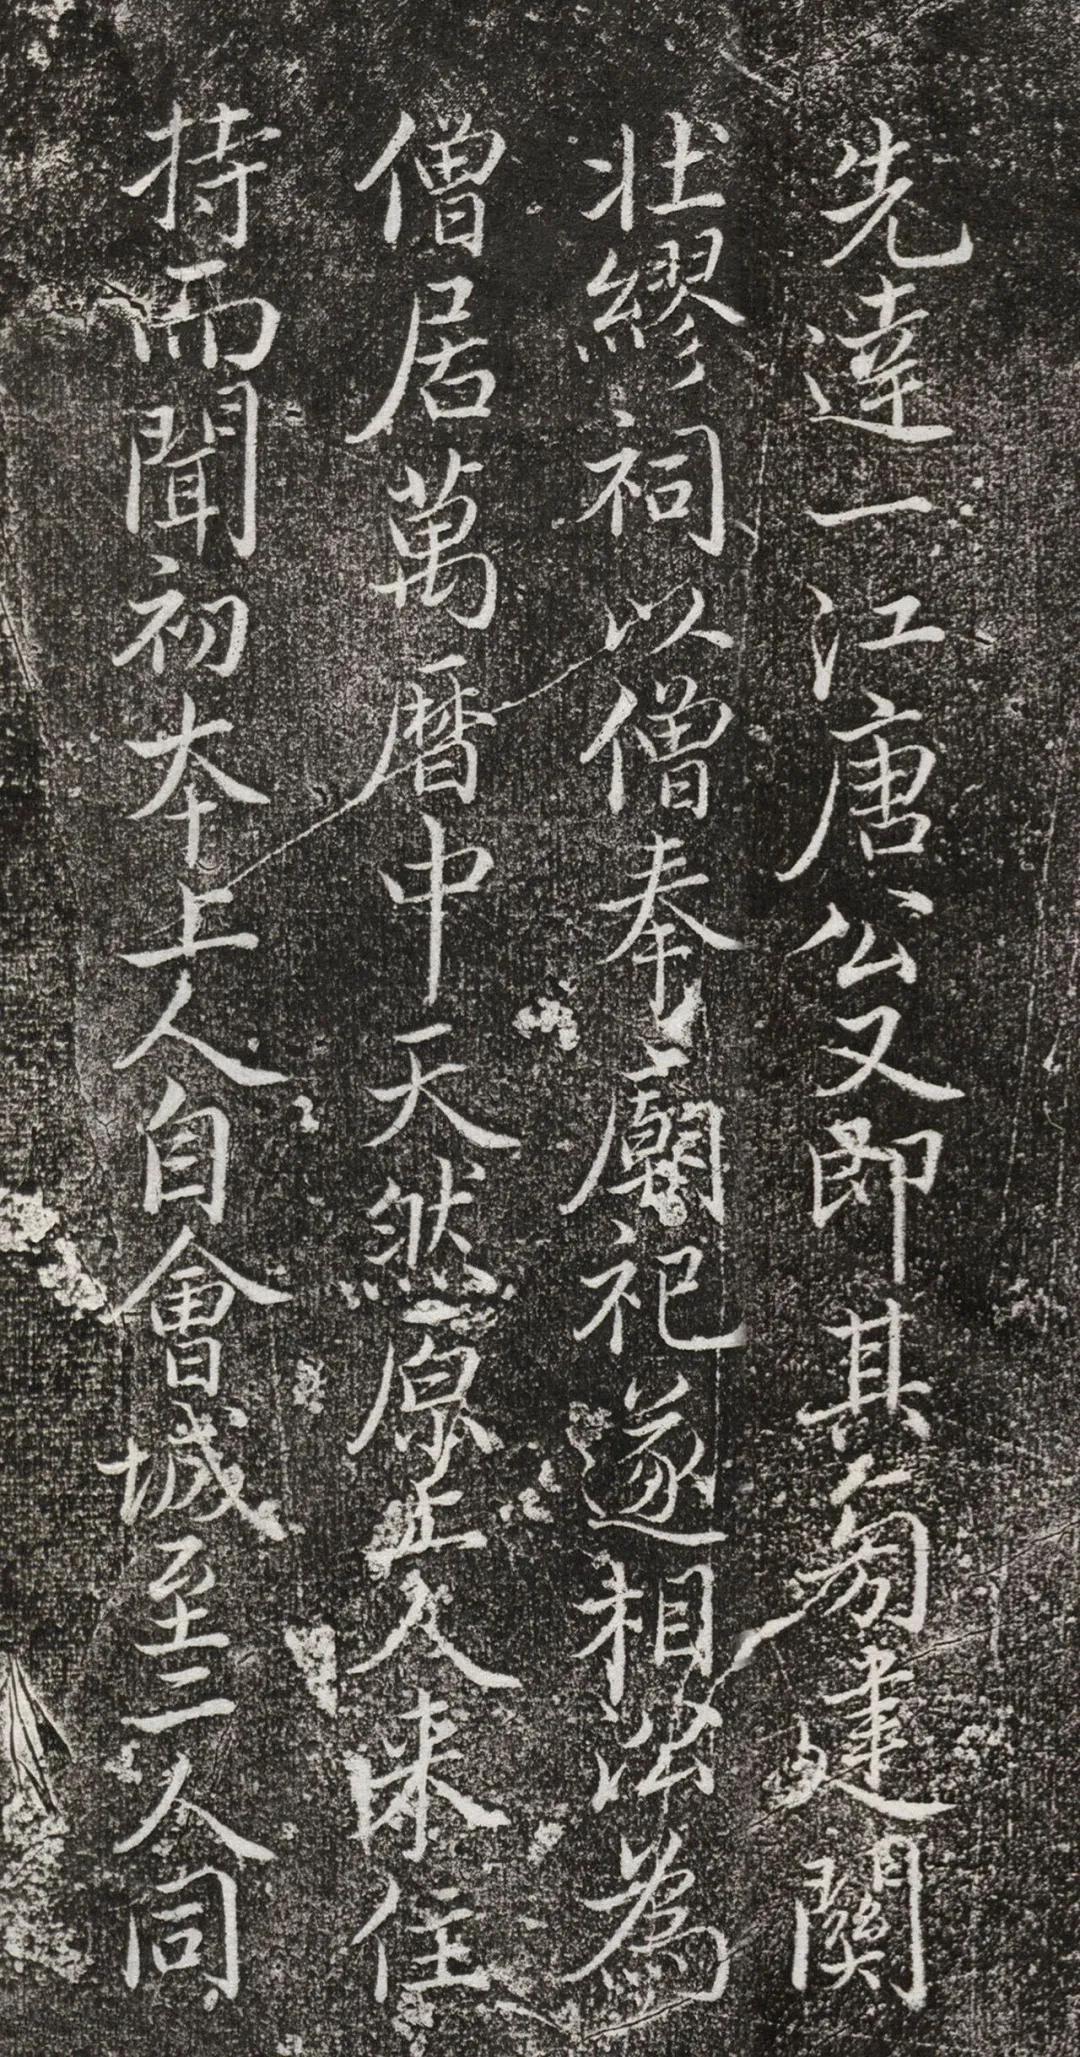 先達一江唐公又即其旁建關
壯繆祠以僧奉廟祀遂相沿為
僧居萬曆中天然原正久來住
持而聞初本上人自會城至二人同